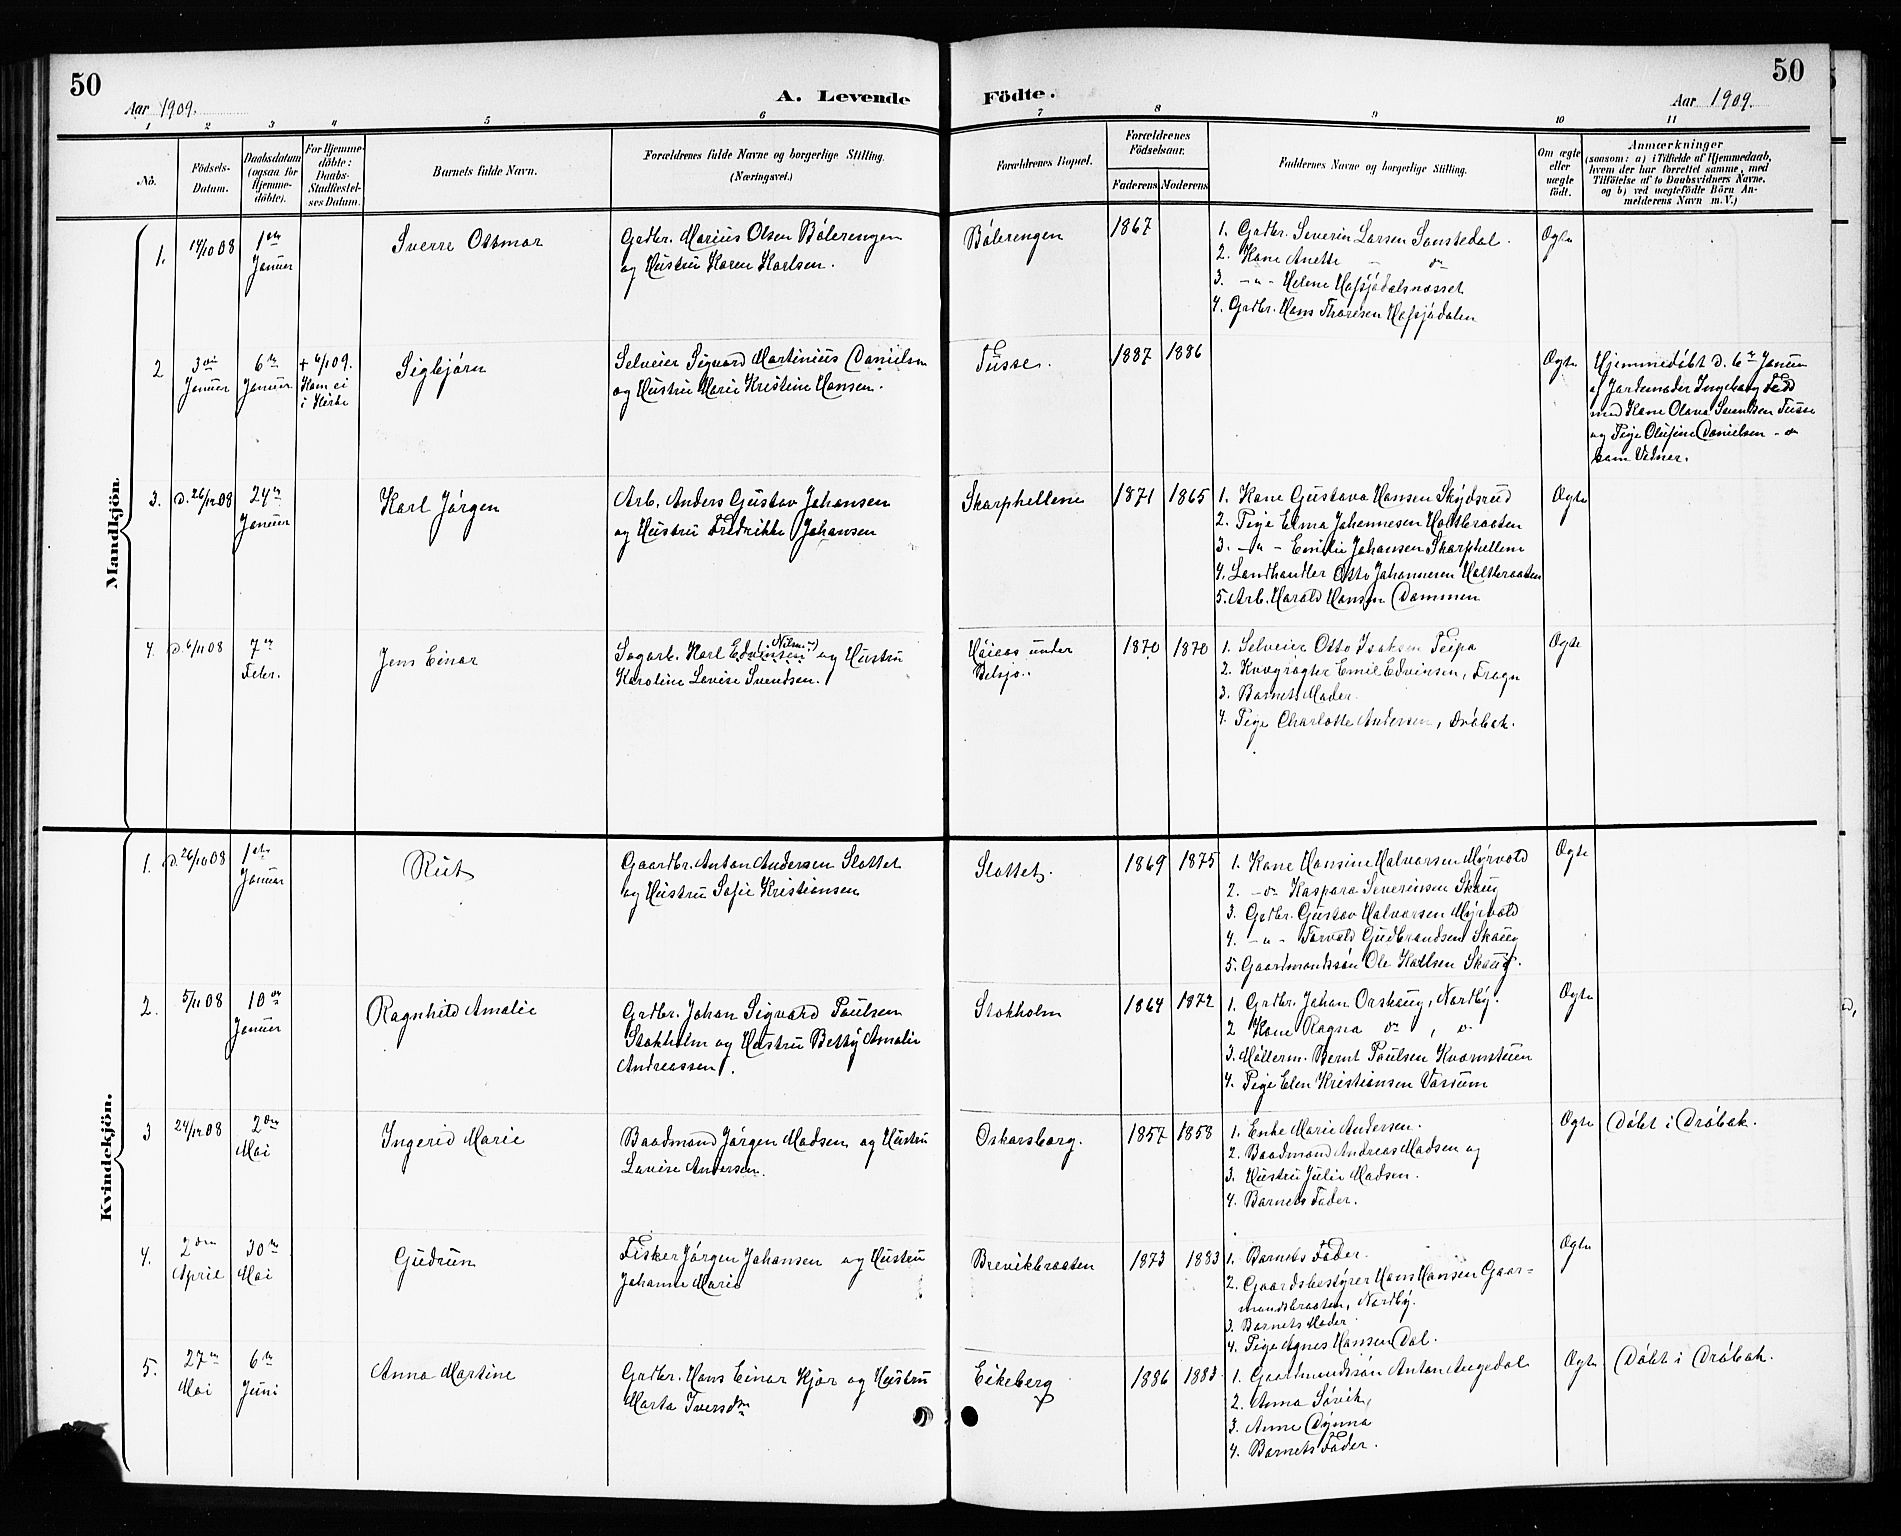 50
Aar 1909.
A. Levende Födte.
Aar 1909.
50
1 2 3 4 5 6 7 8 9 10 11
No.
Födsels-Datum.
Daabsdatum (ogsaa for Hjemme-döbte).
For Hjemme-döbte: Daabs-Stadfæstel-ses Datum.
Barnets fulde Navn.
Forældrenes fulde Navne og borgerlige Stilling. (Næringsvei.)
Forældrenes Bopæl.
Forældrenes Födselsaar.
Faderens Moderens
Faddernes Navne og borgerlige Stilling.
Om ægte eller uægte födt.
Anmærkninger
(saasom: a) i Tilfælde af Hjemmedaab,
hvem der har forrettet samme, med
Tilföielse af to Daabsvidners Navne,
og b) ved uægtefödte Börn An-
melderens Navn m. V.)
Mandkjön.
1. 14/10 08 1ste Januar
Sverre Ottmar
Grdbr. Marius Olsen Bölerengen
og Hustru Karen Karlsen.
Bölerengen
1867
1. Grdbr. Severin Larsen Sonstedal.
2. Kone Anette — do
3. -"- Helene Hofsjödalsnæsset
4. Grdbr. Hans Thoresen Hofsjödalen
Ægte
2 3die Januar 6te Januar
+ 6/1 09. Kom ei i Kirke
Sigbjörn
Selveier Sigvard Martinius Danielsen
og Hustru Marie Kristine Hansen.
Tusse.
1887 1886
Ægte
Hjemmedöbt d. 6te Januar
af Jordemoder Ingeborg
med Kone Olava Svendsen Tusse
og Pige Olufine Danielsen - do
som Vidner.
3. d. 26/12 08 24de Januar
Karl Jörgen
Arb. Anders Gustav Johansen
og Hustru Fredrikke Johansen
Skarphellene
1871 1865
1. Kone Gustava Hansen Skydsrud
2. Pige Elma Johannesen Holtbraaten
3. -"- Emilie Johansen Skarphellene
4. Landhandler Otto Johannesen Holtbraaten
5. Arb. Harald Hansen Dammen
Ægte
4. d. 6/11 08 7de Febr.
Jens Einar
Sagarb. Karl Edvinsen og Hustru
Karoline Lovise Svendsen.
Höieas under
Belsjö.
1870 1870
1. Selveier Otto Isaksen Teipa
2. Kvægrögter Emil Edvinsen, Frogn
3. Barnets Moder.
4. Pige Charlotte Andersen, Dröbak.
Ægte
Kvindekjön.
1. d. 26/10 08 1ste Januar
Rut
Gaardbr. Anton Andersen Slottet
og Hustru Sofie Kristiansen
Slottet.
1869 1875
1. Kone Hansine Halvorsen Myrvold
2. -do- Kaspara Severinsen Skaug
3. Grdbr. Gustav Halvorsen Myrvold
4. -"- Torvald Gudbrandsen Skaug
5. Gaardmandssön Ole Karlsen Skaug.
Ægte
2. 5/11 08 10de Januar
Ragnhild Amalie
Grdbr. Johan Sigvard Paulsen
Stokholm og Hustru Betty Amalie
Andreassen.
Stokholm
1864 1872
1. Grdbr. Johan Orskaug, Nordby.
2 Kone Ragna do , do
3. Möllerm. Bernt Paulsen Kvarnstuen
4. Pige Elen Kristiansen Vassum
Ægte
3 24/12 08 2den Mai
Ingerid Marie
Baadmand Jörgen Madsen og Hustru
Lovise Andersen.
Oskarsborg.
1857 1858
1. Enke Marie Andersen.
2. Baadmand Andreas Madsen og
3. Hustru Julie Madsen.
4. Barnets Fader.
Ægte
Döbt i Dröbak.
4. 2den April 30te Mai
Gudrun
Fisker Jörgen Johansen og Hustru
Johanne Marie
Brevikbraaten
1873 1883
1. Barnets Fader.
2. Gaardsbestyrer Hans Hansen Gaar-
mandsbraaten, Nordby.
3. Barnets Moder
4. Pige Agnes Hansen Dal.
Ægte
5. 27de Mai 6te Juni
Anna Martine
Grdbr. Hans Einar Kjær og Hustru
Marta Iversdtr
Eikeberg
1886 1883
1. Gaardmandssön Anton Angedal
2. Anna Sörvik,
3. Anne Dynna
4. Barnets Fader.
Ægte
Döbt i Dröbak.